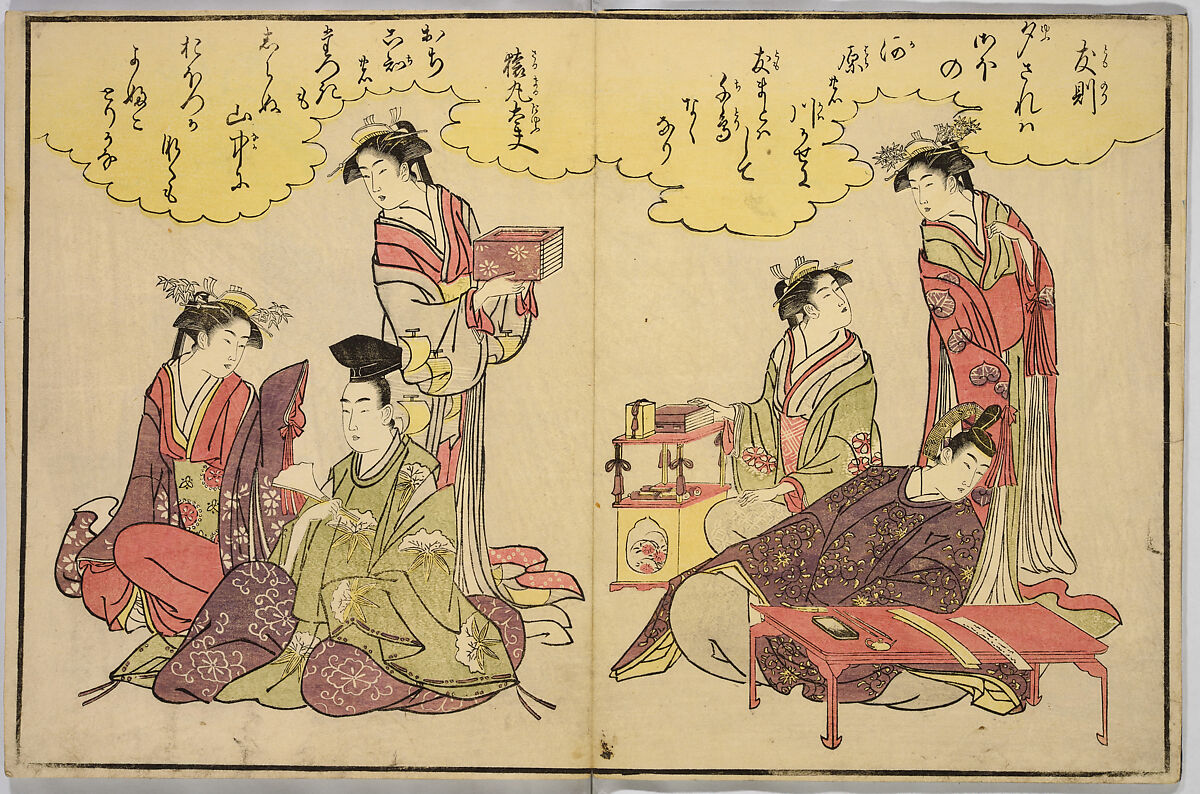 友則
夕されは
さほ
の
河
原
の
川
友まとはして
千鳥
なく
なり
猿丸大夫
をち
こち
の
たつき
も
しらぬ
山中に
おほつか
なくも
よふこ
とりかな